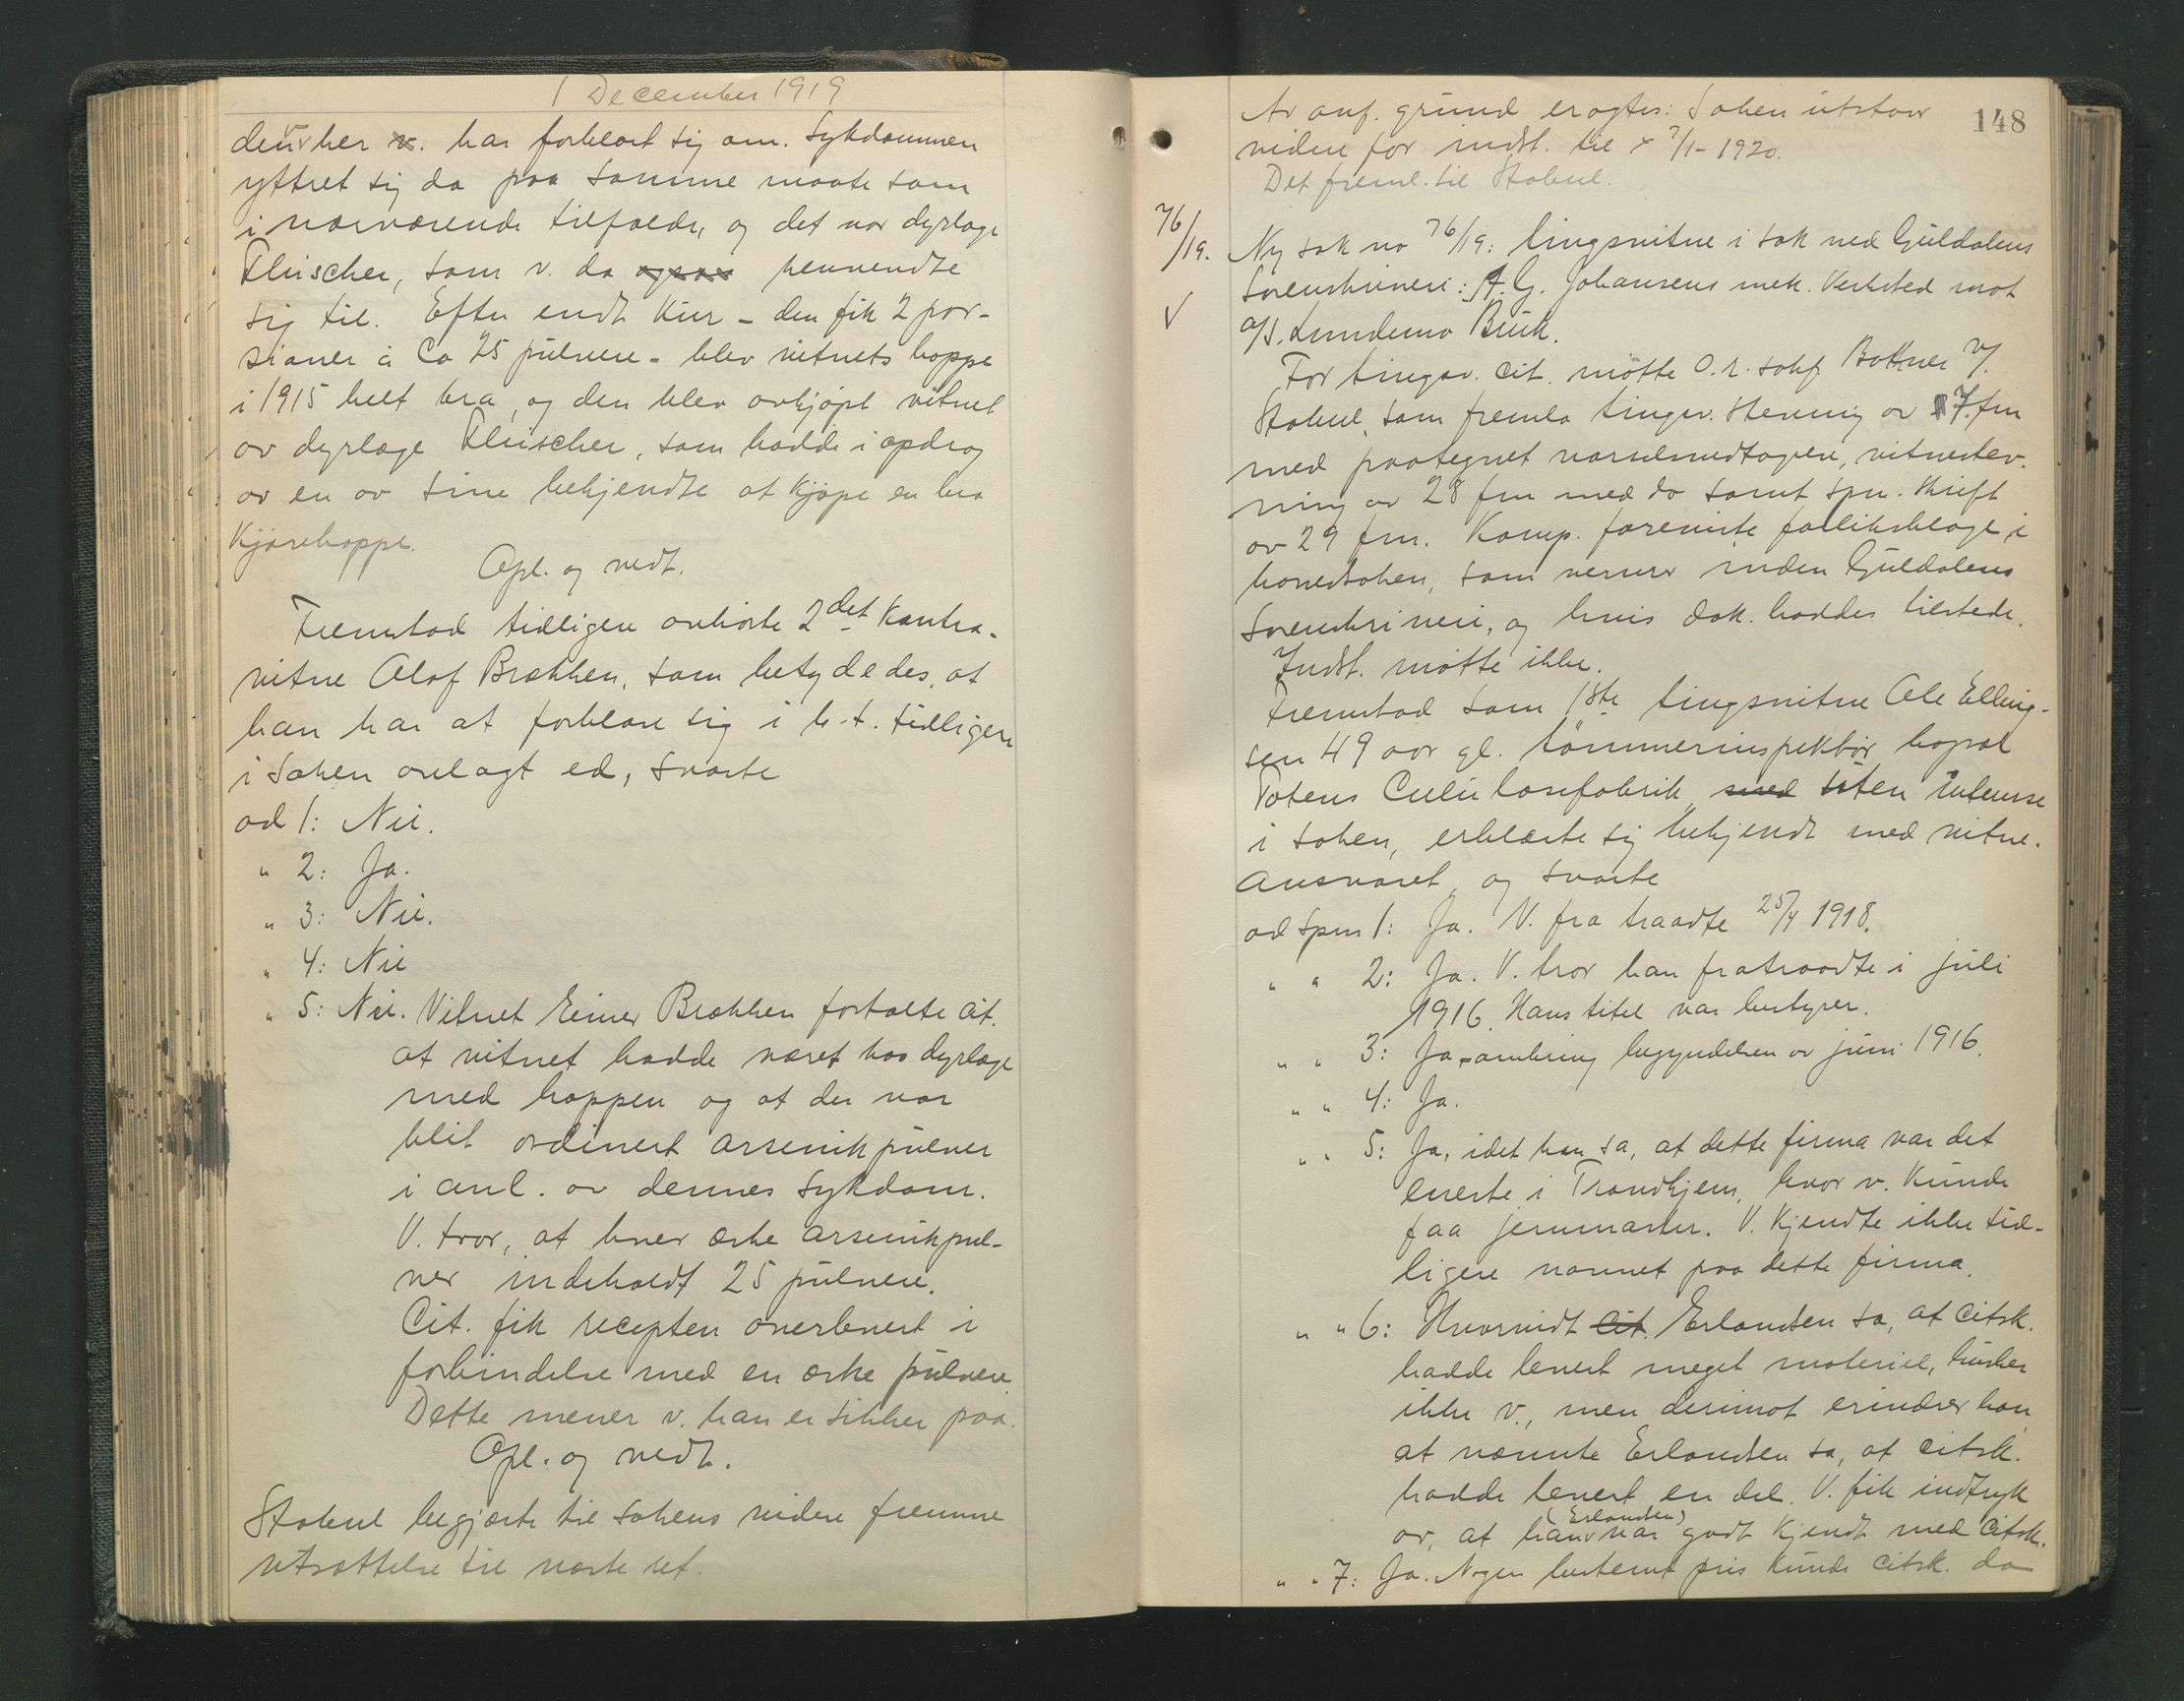 1 December 1919
den her v. har forklart sig om. Sykdommen
yttret sig da paa samme maate som
i nærværende tilfælde, og det var dyrlæge
Fleischer, som v. da ogsaa henvendte
sig til. Efter endt kur - den fik 2 por-
sioner à ca 25 pulvere - blev vitnets hoppe
i 1915 helt bra, og den blev avkjøpt vitnet
av dyrlæge Fleischer, som hadde i opdrag
av en av sine bekjendte at kjøpe en bra
kjørehoppe.
Opl. og vedt.
Fremstod tidligere anhørte 2det kontra-
vitne Olaf Brækken, som betydedes, at
han har at forklare sig i h.t. tidligere
i saken avlagt ed, svarte
ad 1: Nei.
" 2: Ja.
" 3: Nei.
" 4: Nei
" 5: Nei. Vitnet Einar Brækken fortalte cit.
at vitnet hadde været hos dyrlæge
med hoppen og at der var
blit ordinert arsenikpulver
i anl. av dennes sykdom.
V. tror, at hver æske arsenikpul-
ver indeholdt 25 pulvere.
Cit. fik recepten overlevert i
forbindelse med en æske pulvere.
Dette mener v. han er sikker paa.
Opl. og vedt.
Stabel begjærte til sakens videre fremme
utsættelse til næste ret.
148
Av anf. grund eragtes: Saken utstaar
videre for indst. til 7/1- 1920.
Det freml. til Stabel.
76/19.
Ny sak no 76/19: tingsvitne i sak ved Guldalens
Sorenskriveri: A. G. Johansens mek. Verksted mot
a/s. Lundemo Bruk.
For tingsv. cit. møtte O.r. sakf. Bottner v/
Stabel, som fremla tingsv. stevning av 7. fm
med paategnet varselsvedtagen, vitnestev-
ning av 28 fm med do samt spm. skrift
av 29 fm. Komp. foreviste forliksklage i
hovedsaken, som verserer inden Guldalens
Sorenskriveri, og hvis dok. haddes tilstede.
Indst. møtte ikke.
Fremstod som 1ste tingsvitne Ole Elling-
sen 49 aar gl. tømmerinspektør bopæl
Totens Cellulosefabrik, med uten interesse
i saken, erklærte sig bekjendt med vitne-
ansvaret og svarte
ad Spm 1: Ja. V. fra traadte 25/4 1918.
" " 2: Ja. V. tror han fratraadte i juli
1916. Hans titel var bestyrer.
" " 3: Ja, omkring begyndelsen av juni 1916.
" " 4: Ja.
" " 5: Ja, idet han sa, at dette firma var det
eneste i Trondhjem, hvor v. kunde
faa jernvarer. V. kjendte ikke tid-
ligere navnet paa dette firma.
" " 6: Hvorvidt cit. Erlandsen sa, at citsk.
hadde levert meget materiel, husker
ikke v., men derimot erindrer han,
at nævnte Erlandsen sa, at citsk.
hadde levert en del. V. fik indtryk
(Erlandsen)
av, at han var godt kjendt med citsk.
" " 7: Ja. Nogen bestemt pris kunde citsk. da